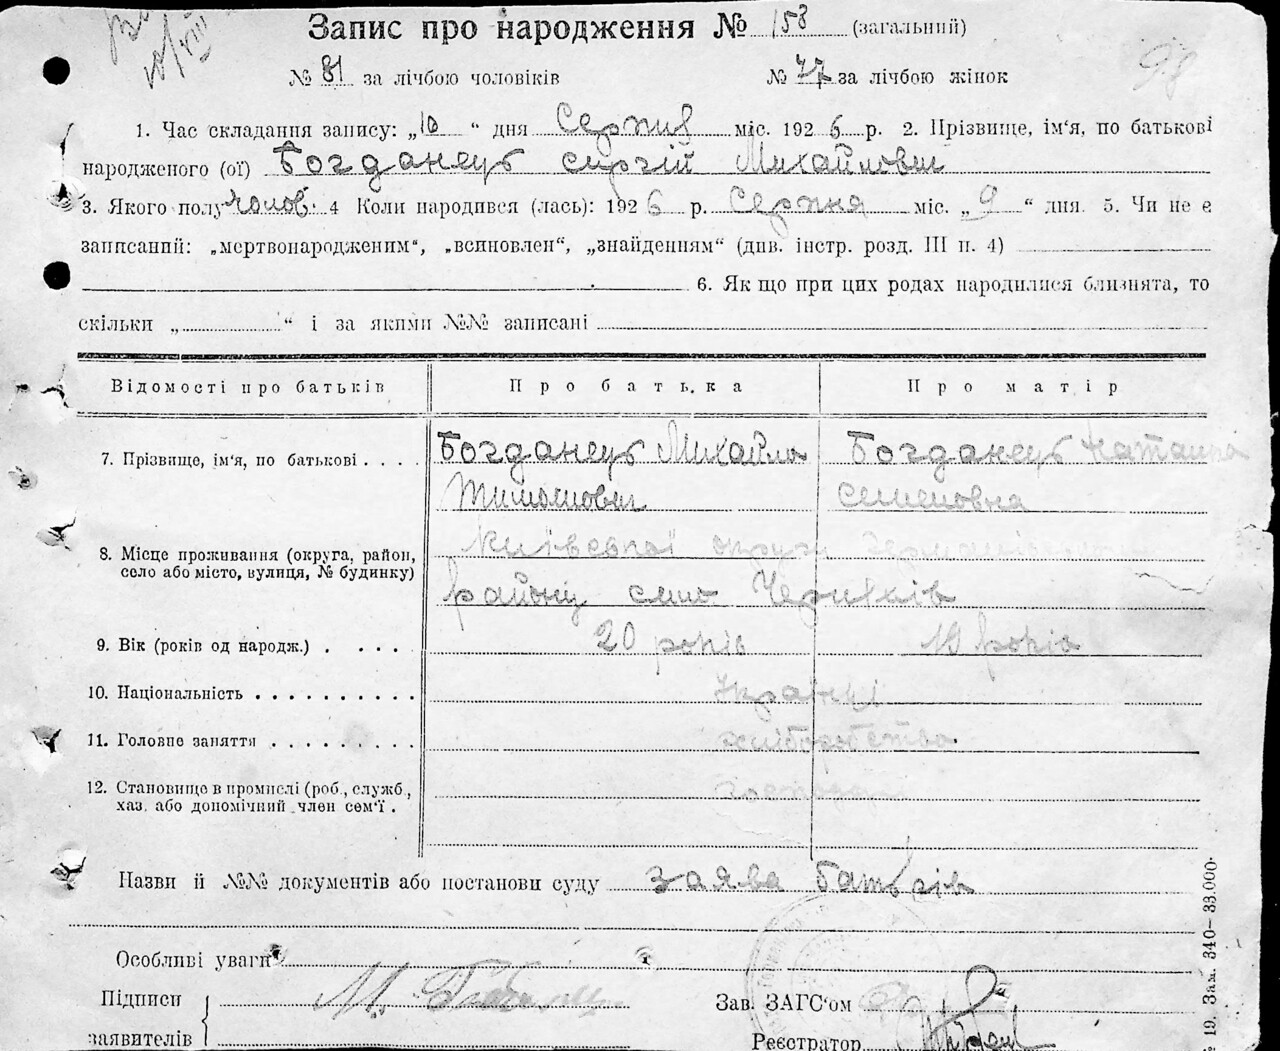 Запис про народження № 158 (загальний)
№ 81 за лічбою чоловіків № 77 за лічбою жінок
1. Час складання запису: „10“ дня Серпня міс. 1926 р. 2. Прізвище, ім'я, по батькові
народженого (ої) Богданець Сиргій Михайлович
3. Якого полу чолов. 4 Коли народився (лась): 1926 р. Серпня міс. „9“ дня. 5. Чи не є
записаний: „мертвонародженим“, „всиновлен“, „знайденням“ (див. інстр. розд. III п. 4)
6. Як що при цих родах народилися близнята, то
скільки „ “ і за якими №№ записані
Відомості про батьків Про батька Про матір
7. Прізвище, ім'я, по батькові . . . . Богданець Михайло Богданець Наталка
Тимошович Семеновна
8. Місце проживання (округа, район, Київської округи
село або місто, вулиця, № будинку) району село Черняхів
9. Вік (років од народж.) . . . . . 20 років 19 років
10. Національність . . . . . . . . . . Українці
11. Головне заняття . . . . . . . . . хліборобство
12. Становище в промислі (роб., служб.,
хаз. або допомічний член сем'ї .
Назви й №№ документів або постанови суду заява батьків
Особливі уваги
Підписи М. Зав. ЗАГС'ом
заявителів Реєстратор
19. Зам. 340–33.000.